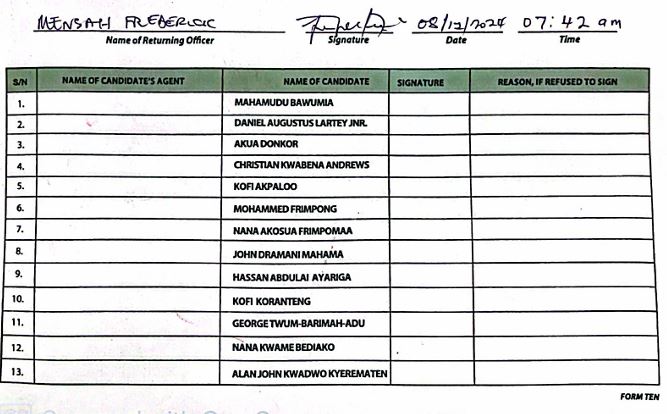 MENSAH FREDERICK 08/12/2024 07:42 am
Name of Returning Officer Signature Date Time
S/N NAME OF CANDIDATE'S AGENT NAME OF CANDIDATE SIGNATURE REASON, IF REFUSED TO SIGN
1. MAHAMUDU BAWUMIA
2. DANIEL AUGUSTUS LARTEY JNR.
3. AKUA DONKOR
4. CHRISTIAN KWABENA ANDREWS
5. KOFI AKPALOO
6. MOHAMMED FRIMPONG
7. NANA AKOSUA FRIMPOMAA
8. JOHN DRAMANI MAHAMA
9. HASSAN ABDULAI AYARIGA
10. KOFI KORANTENG
11. GEORGE TWUM-BARIMAH-ADU
12. NANA KWAME BEDIAKO
13. ALAN JOHN KWADWO KYEREMATEN
FORM TEN